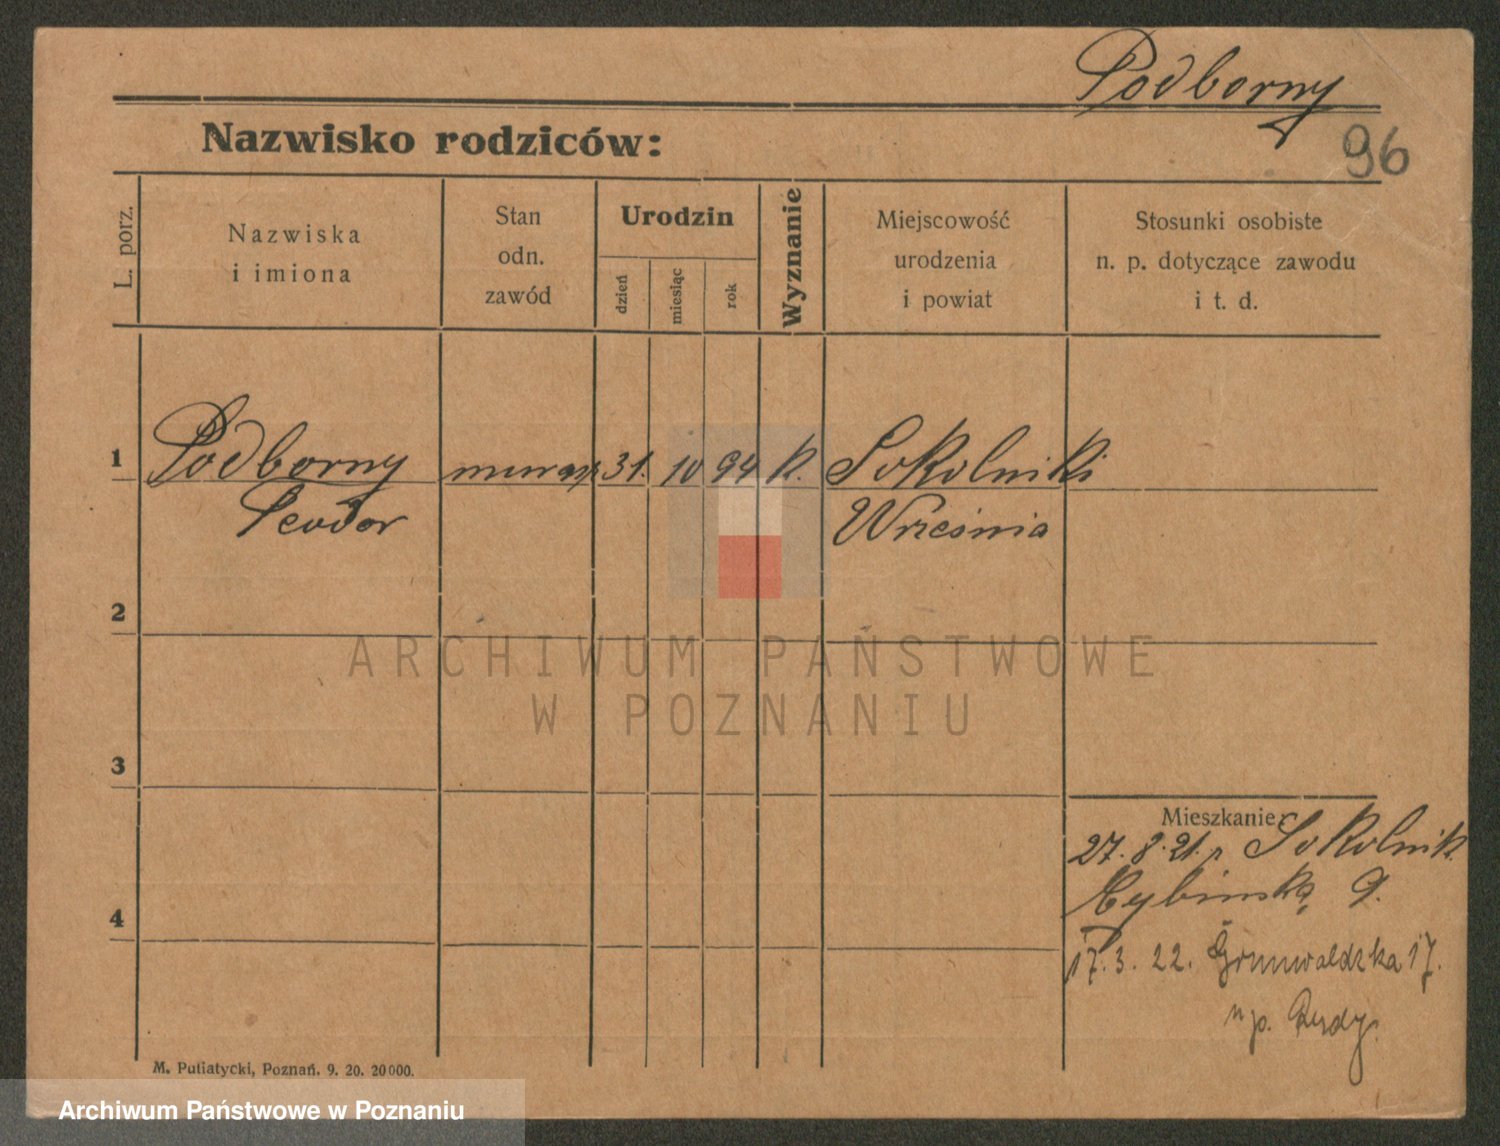 Podborny
Nazwisko rodziców:
96
L. porz.
Nazwiska
i imiona
Stan
odn.
zawód
Urodzin
dzień
miesiąc
rok
Wyznanie
Miejscowość
urodzenia
i powiat
Stosunki osobiste
n. p. dotyczące zawodu
i t. d.
1
Podborny 31. 10 94 k. Sokolniki
Teodor
Września
2
ARCHIWUM PAŃSTWOWE
W POZNANIU
3
Mieszkanie:
27. 8. 21. Sokolnik.
Cybińska 9.
4
17. 3. 22. Grunwaldzka 17.
M. Putiatycki, Poznań. 9. 20. 20000.
Archiwum Państwowe w Poznaniu